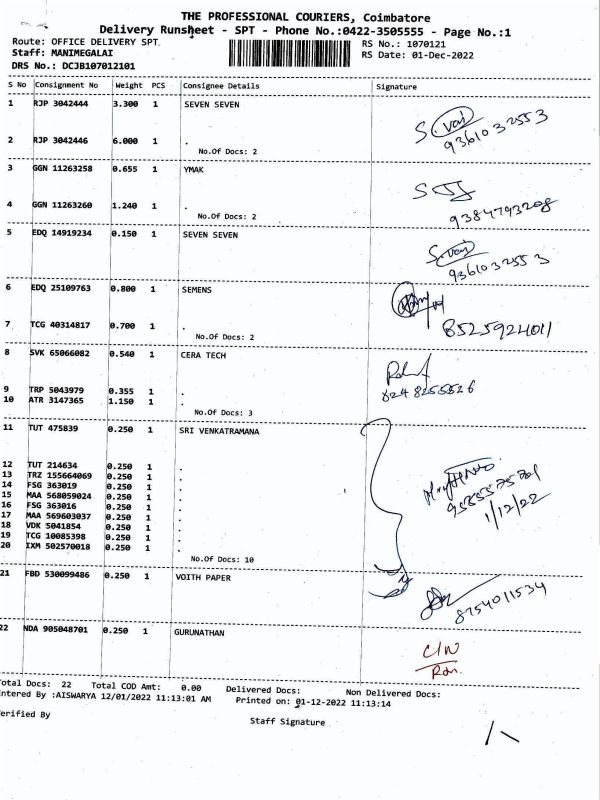 THE PROFESSIONAL COURIERS, Coimbatore
Delivery Runsheet - SPT - Phone No.:0422-3505555 - Page No.:1
Route: OFFICE DELIVERY SPT RS No.: 1070121
Staff: MANIMEGALAI RS Date: 01-Dec-2022
DRS No.: DCJB107012101
S No Consignment No Weight PCS Consignee Details Signature
1 RJP 3042444 3.300 1 SEVEN SEVEN
S. vai
9361032553
2 RJP 3042446 6.000 1 .
No.Of Docs: 2
3 GGN 11263258 0.655 1 YMAK
4 GGN 11263260 1.240 1 .
9384793208
No.Of Docs: 2
5 EDQ 14919234 0.150 1 SEVEN SEVEN
S. vai
9361032553
6 EDQ 25109763 0.800 1 SEMENS
7 TCG 40314817 0.700 1 .
8525924011
No.Of Docs: 2
8 SVK 65066082 0.540 1 CERA TECH
9 TRP 5043979 0.355 1 .
8248255526
10 ATR 3147365 1.150 1 .
No.Of Docs: 3
11 TUT 475839 0.250 1 SRI VENKATRAMANA
12 TUT 214634 0.250 1 .
13 TRZ 155664069 0.250 1 .
14 FSG 363019 0.250 1 .
15 MAA 568059024 0.250 1 .
16 FSG 363016 0.250 1 .
1/12/22
17 MAA 569603037 0.250 1 .
18 VDK 5041854 0.250 1 .
19 TCG 10085398 0.250 1 .
20 IXM 502570018 0.250 1 .
No.Of Docs: 10
21 FBD 530099486 0.250 1 VOITH PAPER
8754011534
22 NDA 905048701 0.250 1 GURUNATHAN
C/N
Total Docs: 22 Total COD Amt: 0.00 Delivered Docs: Non Delivered Docs:
Entered By :AISWARYA 12/01/2022 11:13:01 AM Printed on: 01-12-2022 11:13:14
Verified By Staff Signature